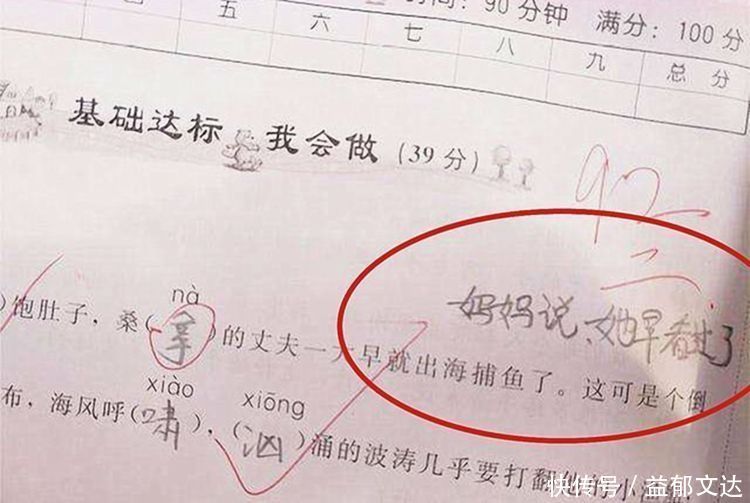 间：90 分钟 满分：100 分
五 六 七 八 九 总 分
基础达标 我会做 (39 分)
92
妈妈说，她早看过了
nà
)饱肚子，桑( )的丈夫一大早就出海捕鱼了。这可是个倒
xiào xiōng
布，海风呼(啸)，(汹)涌的波涛几乎要打翻
快传号 / 益郁文达